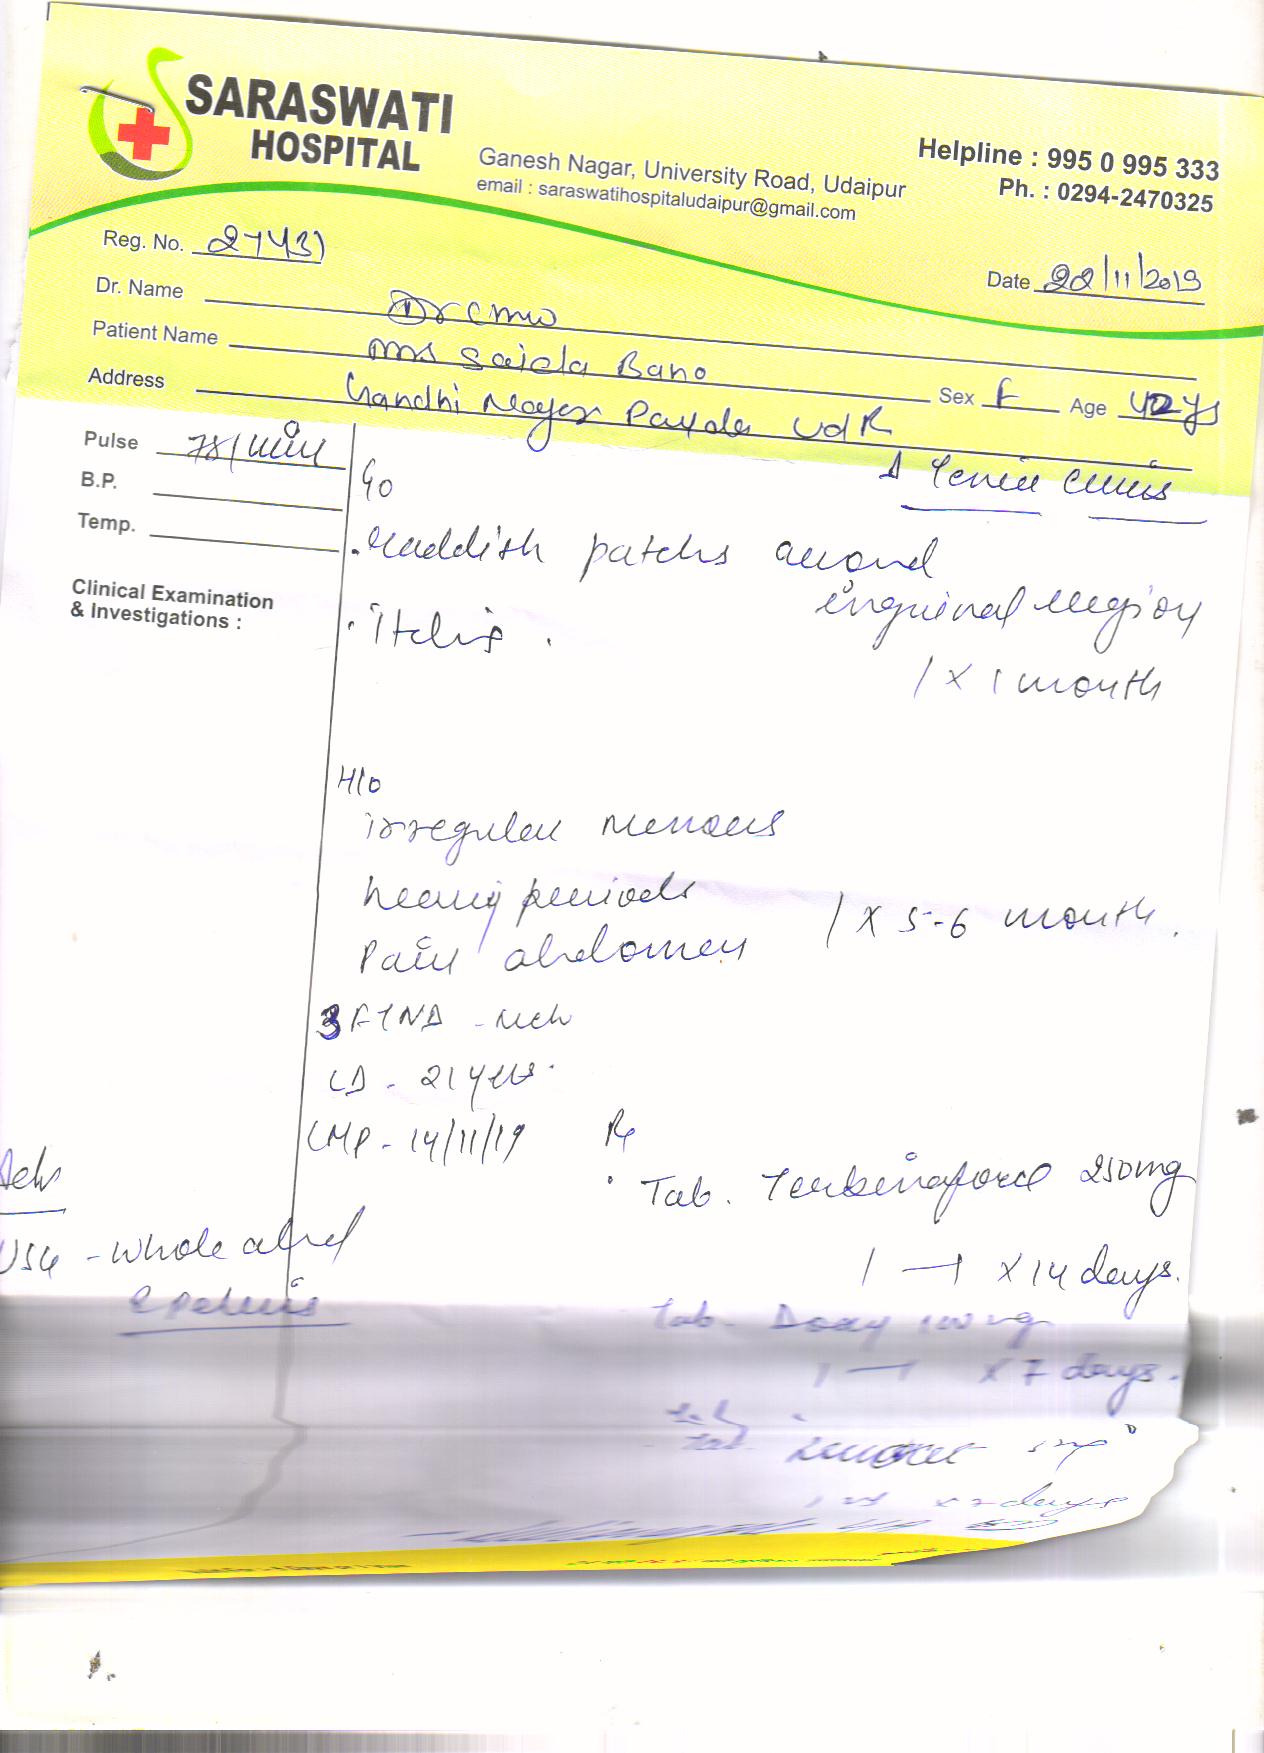 SARASWATI
HOSPITAL
Ganesh Nagar, University Road, Udaipur
email : saraswatihospitaludaipur@gmail.com
Helpline : 995 0 995 333
Ph. : 0294-2470325
Reg. No. 27431
Date 22/11/2019
Dr. Name Dr CMO
Patient Name Mrs Saida Bano
Sex F Age 42 ys
Address Gandhi Nager UdR
Pulse 78/min
B.P.
Temp.
Clinical Examination
& Investigations :
Δ Tenia Cruris
C/o
. Raddish patchs around
inguinal region
. Itching .
/ x 1 month
H/o
irregular menses
heavy periods
Pain abdomen
/ x 5-6 month .
3 FTND -
LD - 21 yers.
LMP - 14/11/19
Adv
USG - whole abd
c pelvis
Rx
. Tab. Terbinaforce 250mg
1 — 1 x 14 days.
Tab. Doxy 100 mg
1 — 1 x 7 days.